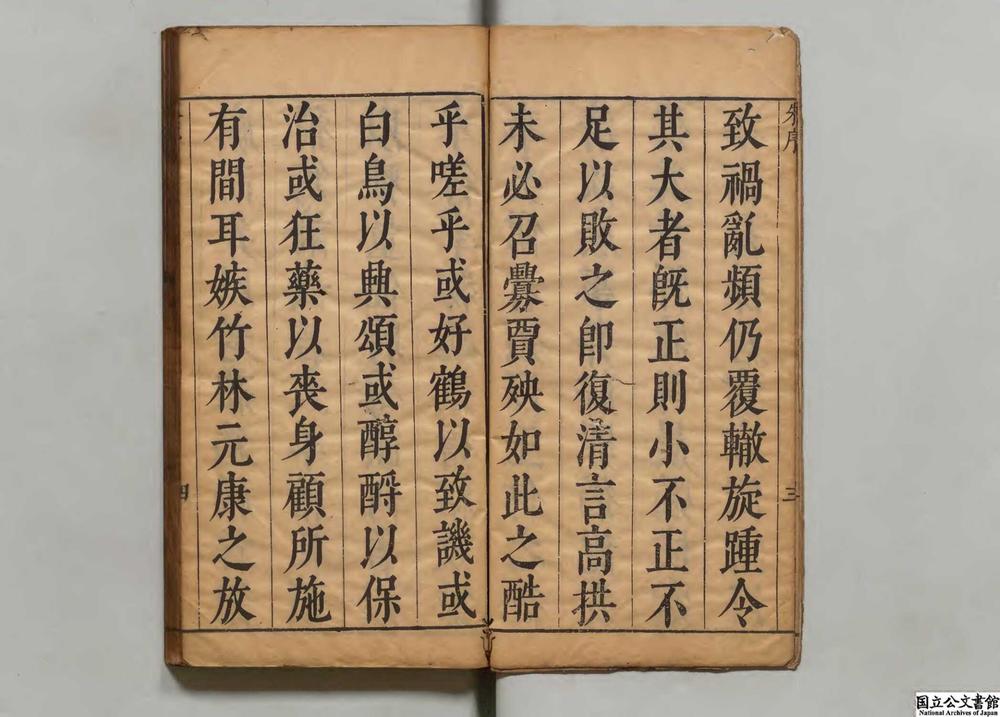 朱序
三
致禍亂頻仍覆轍旋踵令
其大者旣正則小不正不
足以敗之卽復清言高拱
未必召釁賈殃如此之酷
乎嗟乎或好鶴以致譏或
白鳥以興頌或醇酹以保
治或狂藥以丧身顧所施
有間耳嫉竹林元康之放
四
国立公文書館
National Archives of Japan